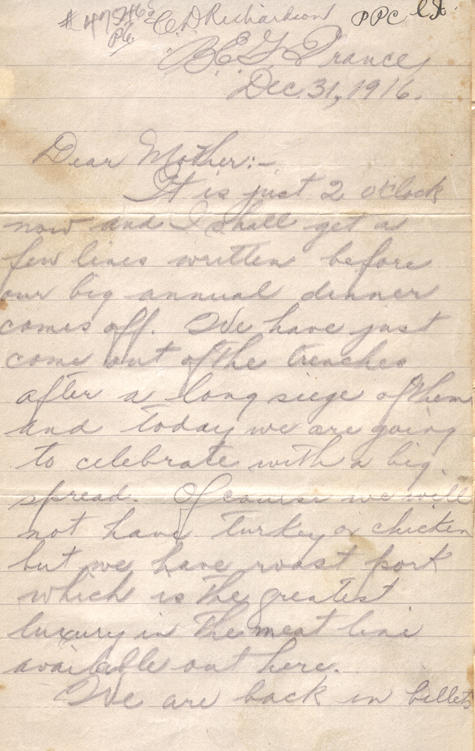 # 475465 C. D. Richardson PPC
B.E.F. France,
Dec. 31, 1916.
Dear Mother:-
It is just 2 o'clock
now and I shall get a
few lines written before
our big annual dinner
comes off. We have just
come out of the trenches
after a long siege of them
and today we are going
to celebrate with a big
spread. Of course we will
not have turkey or chicken
but we have roast pork
which is the greatest
luxury in the meat line
available out here.
We are back in billets